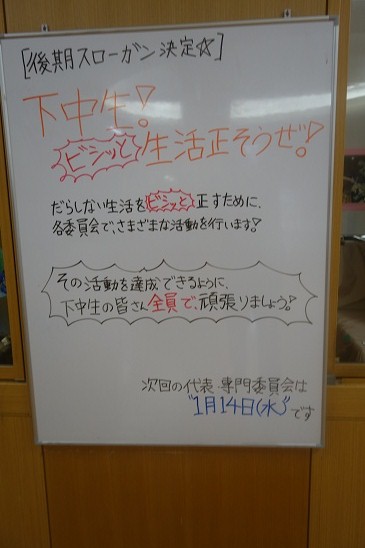 [後期スローガン決定☆]
下中生!
ビシッと生活正そうぜ!
だらしない生活をビシッと正すために、
各委員会で、さまざまな活動を行います!
その活動を達成できるように、
下中生の皆さん全員で、頑張りましょう!
次回の代表専門委員会は
"1月14日(水)"です